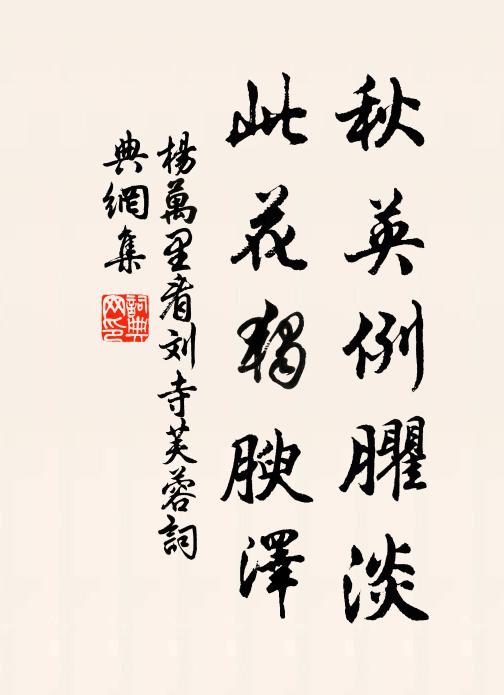 秋英例臞淡
此花獨腴澤
楊萬里看刘寺芙蓉詞
典網集
詞典网印